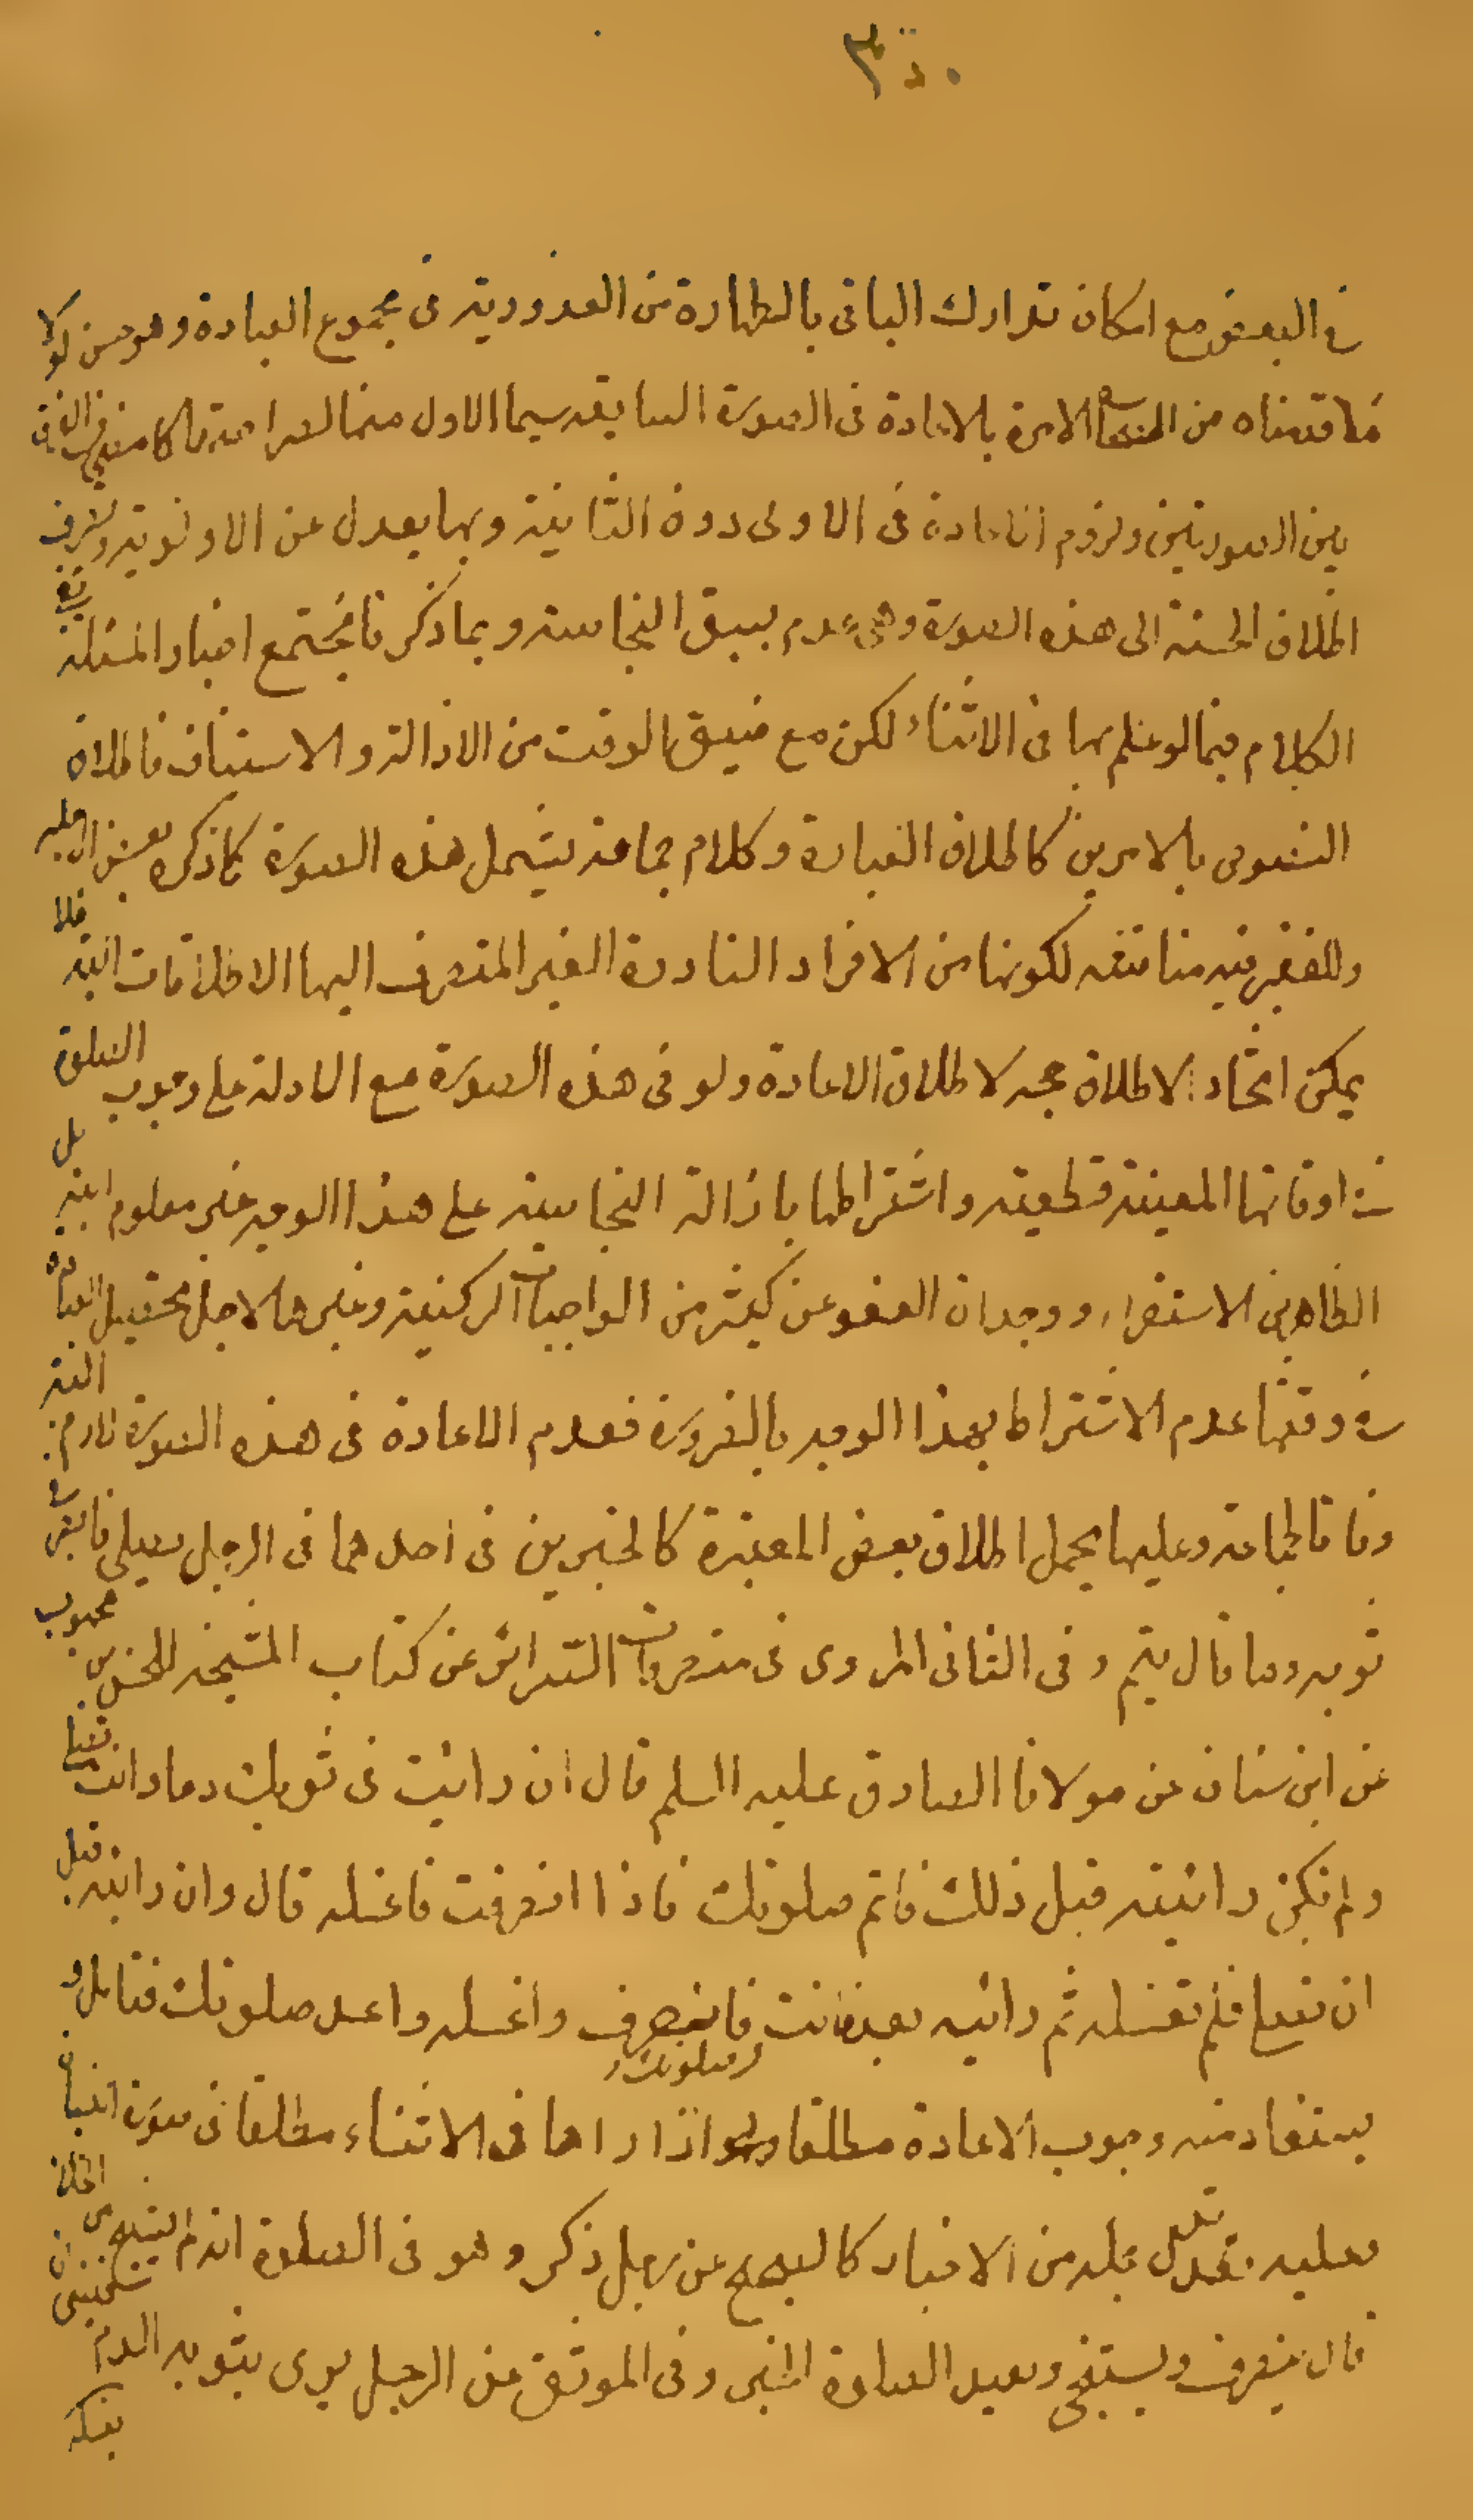 في البعض مع امكان تدارك الباقى بالطهارة من العذورية فى مجموع العبادة وهو حسن لولا
ما قدمناه من الامرة بالاعادة فى الصورة السابقة سيما الاول منها
بين الصورتين ولزوم الاعادة فى الاولى دون الثانية وبها يعدل عن الاولوية ويصرف
اطلاق الحسنة الى هذه الصورة وهى عدم سبق النجاسة وبما ذكرنا يجتمع اخبار المسئلة بقى
الكلام فيما لو علم بها فى الاثناء لكن مع ضيق الوقت من الازالة والاستيناف فاطلاق
النصوص بالامرين كاطلاق العبارة وكلام جماعة يشمل هذه الصورة كما ذكره بعض الاجلة
وللفقير فيه مناقشة لكونها من الافراد النادرة الغير المنصرف اليها الاطلاقات البتة فلا
يمكن اتخاذ الاطلاق حجة لاطلاق الاعادة ولو فى هذه الصورة مع الادلة على وجوب الصلوة
فى اوقاتها المعينة قطعية واشتراطها بازالة النجاسة على هذا الوجه غير معلوم البتة بل
الظاهر من الاستقراء ووجدان العفو عن كثير من الواجبات الركنية وغيرها لاجل تحصيل العبادة
فى وقتها عدم الاشتراط بهذا الوجه بالضرورة فعدم الاعادة فى هذه الصورة لازم البتة
وفاقا لجماعة وعليها يحمل اطلاق بعض المعتبرة كالخبرين فى احدهما فى الرجل يصلى فابصر فى
ثوبه دما قال يتم وفى الثانى المروى فى مستطرفات السرائر عن كتاب المشيخة للحسن بن محبوب
عن ابن سنان عن مولانا الصادق عليه السلم قال ان رايت فى ثوبك دما وانت تصلى
ولم تكن رايته قبل ذلك فاتم صلوتك فاذا انصرفت فاغسله قال وان رايته قبل
ان تصلى فلم تغسله ثم رايته بعد وانت فى صلوتك فانصرف واغسله واعد صلوتك فتامل و
يستفاد منه وجوب الاعادة مطلقا ولو اذا راها فى الاثناء مطلقا فى صورة النسيان
وعليه تدل جملة من الاخبار كالصحيح عن رجل ذكر وهو فى الصلوة انه لم يستنج من الخلاء
قال ينصرف ويستنجى ويعيد الصلوة الخبر وفى الموثق عن الرجل يرى بثوبه الدم فينسى ان
يغسله